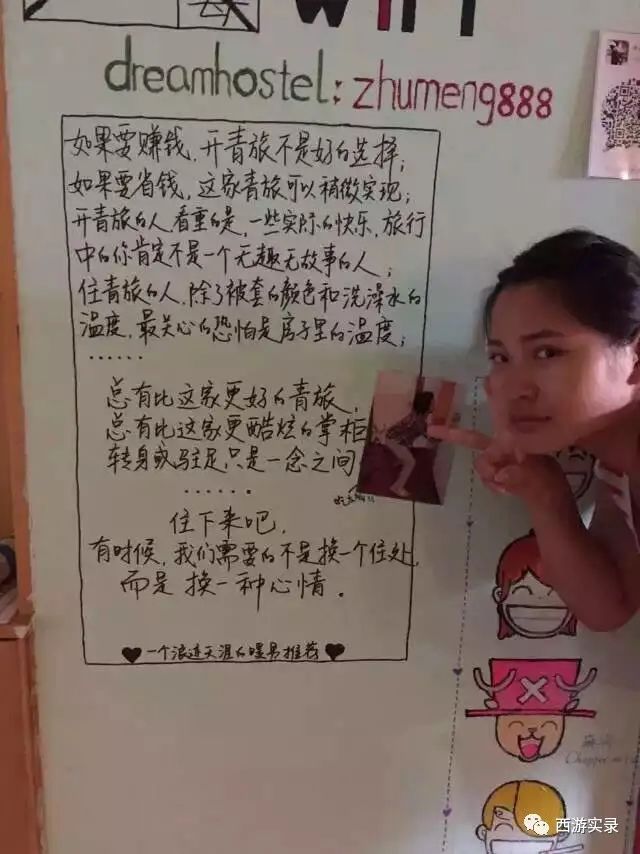 WiFi
dreamhostel: zhumeng888
如果要赚钱,开青旅不是好的选择;
如果要省钱,这家青旅可以稍微实现;
开青旅的人看重的是,一些实际的快乐,旅行
中的你肯定不是一个无趣无故事的人;
住青旅的人,除了被套的颜色和洗澡水的
温度,最关心的恐怕是房子里的温度;
······
总有比这家更好的青旅,
总有比这家更酷炫的掌柜
转身或驻足,只是一念之间
······
住下来吧,
有时候,我们需要的不是换一个住处,
而是 换一种心情.
一个浪迹天涯的 推荐
Chopper
西游实录